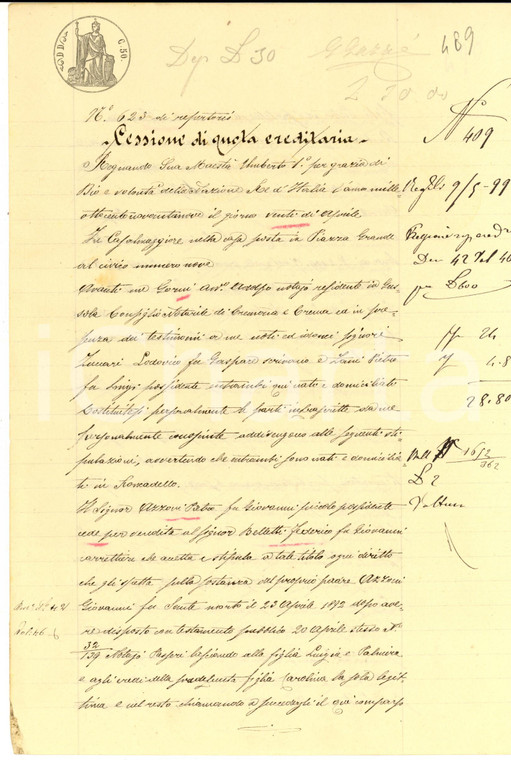 489
Dep £ 50
N.° 623 di repertorio
Cessione di quota ereditaria
N.° 409
Regnando Sua Maestà Umberto I.° per grazia di
Dio e volontà della Nazione Re d'Italia l'anno mille
ottocentonovantanove il giorno venti di Aprile.
9/5-99
In Casalmaggiore nella casa posta in Piazza Grande
al civico numero nove
Avanti me Gorni Avv. Adolfo notajo residente in Gus
sola Consiglio Notarile di Cremona e Crema ed in pre
senza dei testimonii a me noti ed idonei signori
Lodovico fu Gaspare scrivano e Pietro
fu Luigi possidente entrambi qui nati e domiciliati
28.80
personalmente le parti infrascritte da me
personalmente conosciute addivengono alle seguenti sti
pulazioni, avvertendo che entrambi sono nati e domicilia
ti in Roncadello.
1692
362
£ 2
Il Signor Azzoni Pietro fu Giovanni piccolo possidente
cede per vendita al signor Belletti Federico fu Giovanni
carrettiere che accetta e stipula a tale titolo ogni diritto
che gli spetta sulla sostanza del proprio padre Azzoni
Giovanni fu Sante morto il 23 Aprile 1892 dopo ave
re disposto con testamento pubblico 20 Aprile stesso N.°
32
139 Notajo lasciando alle figlie Luigia e Palmira
e agli eredi della predefunta figlia Carolina la sola legit
tima e nel resto chiamando a succedergli il qui comparso